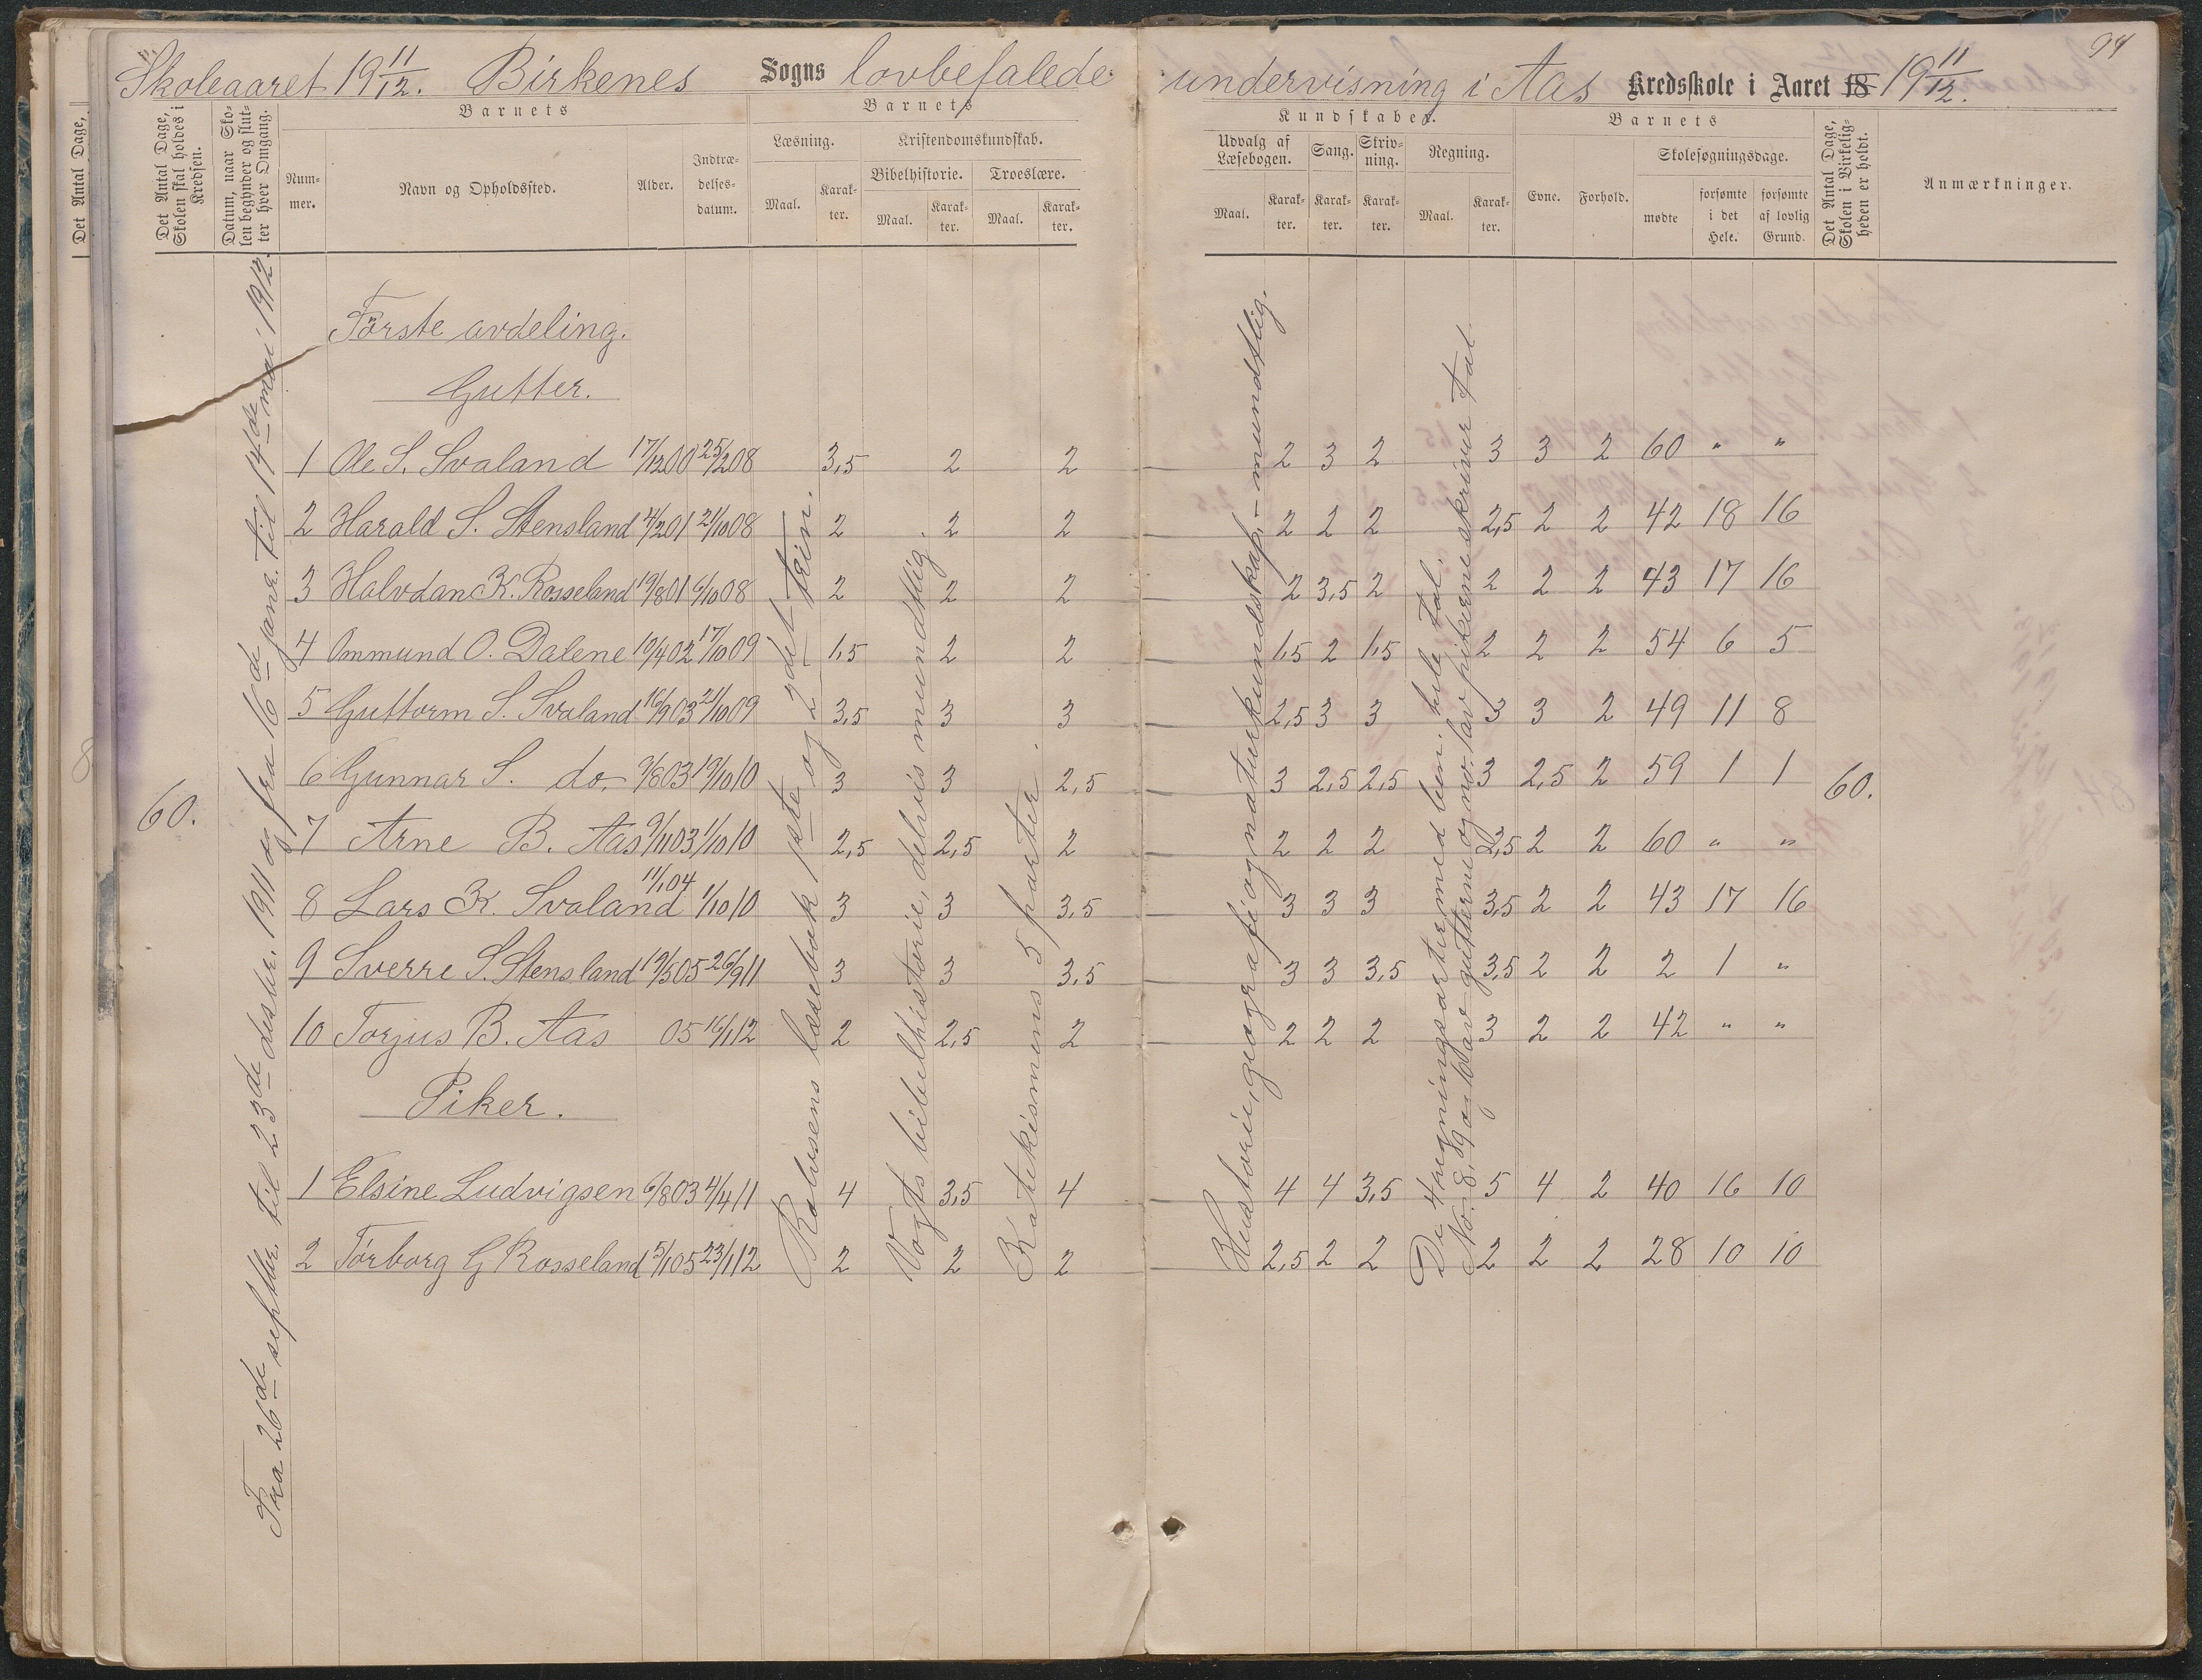 Skoleaaret 19 11/12. Birkenes Sogns lovbefalede undervisning i Aas Kredsskole i Aaret 18 19 11/12.
94
Det Antal Dage,
Det Antal Dage, Skolen skal holdes i Kredsen.
Datum, naar Skolen begynder og slutter hver Omgang.
Barnets
Nummer.
Navn og Opholdssted.
Alder.
Indtrædelsesdatum.
Barnets
Læsning.
Maal.
Karakter.
Kristendomskundskab.
Bibelhistorie.
Maal.
Karakter.
Troeslære.
Maal.
Karakter.
Kundskaber.
Udvalg af Læsebogen.
Maal.
Karakter.
Sang.
Karakter.
Skrivning.
Karakter.
Regning.
Maal.
Karakter.
Barnets
Evne.
Forhold.
Skolesøgningsdage.
mødte
forsømte i det Hele.
forsømte af lovlig Grund.
Det Antal Dage, Skolen i Virkeligheden er holdt.
Anmærkninger.
60.
Fra 26de septbr. til 23de desbr. 1911 og fra 16de janr. til 14de mai 1912.
Første avdeling.
Gutter.
1 Ole S. Svaland 17/12 00 25/2 08 3,5 2 2 — 2 3 2 3 3 2 60 " "
2 Harald S. Stensland 4/2 01 21/10 08 2 2 2 — 2 2 2 2,5 2 2 42 18 16
3 Halvdan K. Rosseland 19/8 01 6/10 08 2 2 2 — 2 3,5 2 2 2 2 43 17 16
4 Ommund O. Dalene 19/4 02 17/10 09 1,5 2 2 — 1,5 2 1,5 2 2 2 54 6 5
5 Guttorm S. Svaland 16/9 03 21/10 09 3,5 3 3 — 2,5 3 3 3 3 2 49 11 8
6 Gunnar S. do. 9/8 03 19/10 10 3 3 2,5 — 3 2,5 2,5 3 2,5 2 59 1 1 60.
7 Arne B. Aas 9/11 03 1/10 10 2,5 2,5 2 — 2 2 2 2,5 2 2 60 " "
8 Lars K. Svaland 11/1 04 1/10 10 3 3 3,5 — 3 3 3 3,5 2 2 43 17 16
9 Sverre S. Stensland 19/5 05 26/9 11 3 3 3,5 — 3 3 3,5 3,5 2 2 2 1 "
10 Torjus B. Aas 05 16/1 12 2 2,5 2 — 2 2 2 3 2 2 42 " "
Piker.
1 Elsine Ludvigsen 6/8 03 4/4 11 4 3,5 4 — 4 4 3,5 5 4 2 40 16 10
2 Torborg G Rosseland 5/1 05 23/1 12 2 2 2 — 2,5 2 2 2 2 2 28 10 10
Rolvsens læsebok 1ste og 2det trin.
Vogts bibelhistorie, delvis mundtlig
Katekismens 5 parter.
Historie, geografi og naturkundskap, — mundtlig.
De 4 regningsarter med ben. hele tal.
No. 8, 9 og 10 av gutterne og no. 1 av pikerne skriver tal.